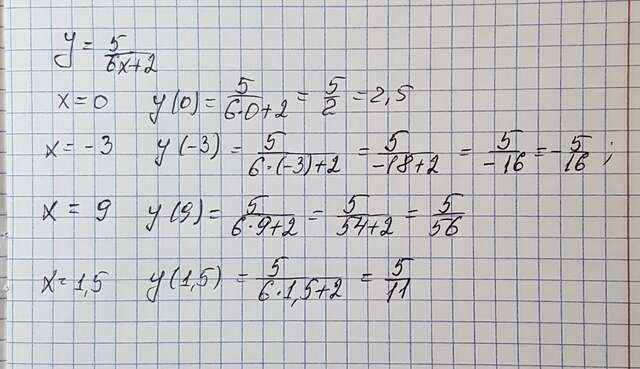 y = 5/(6x+2)
x = 0 y(0) = 5/(6·0+2) = 5/2 = 2,5
x = -3 y(-3) = 5/(6·(-3)+2) = 5/(-18+2) = 5/(-16) = -5/16 ;
x = 9 y(9) = 5/(6·9+2) = 5/(54+2) = 5/56
x = 1,5 y(1,5) = 5/(6·1,5+2) = 5/11